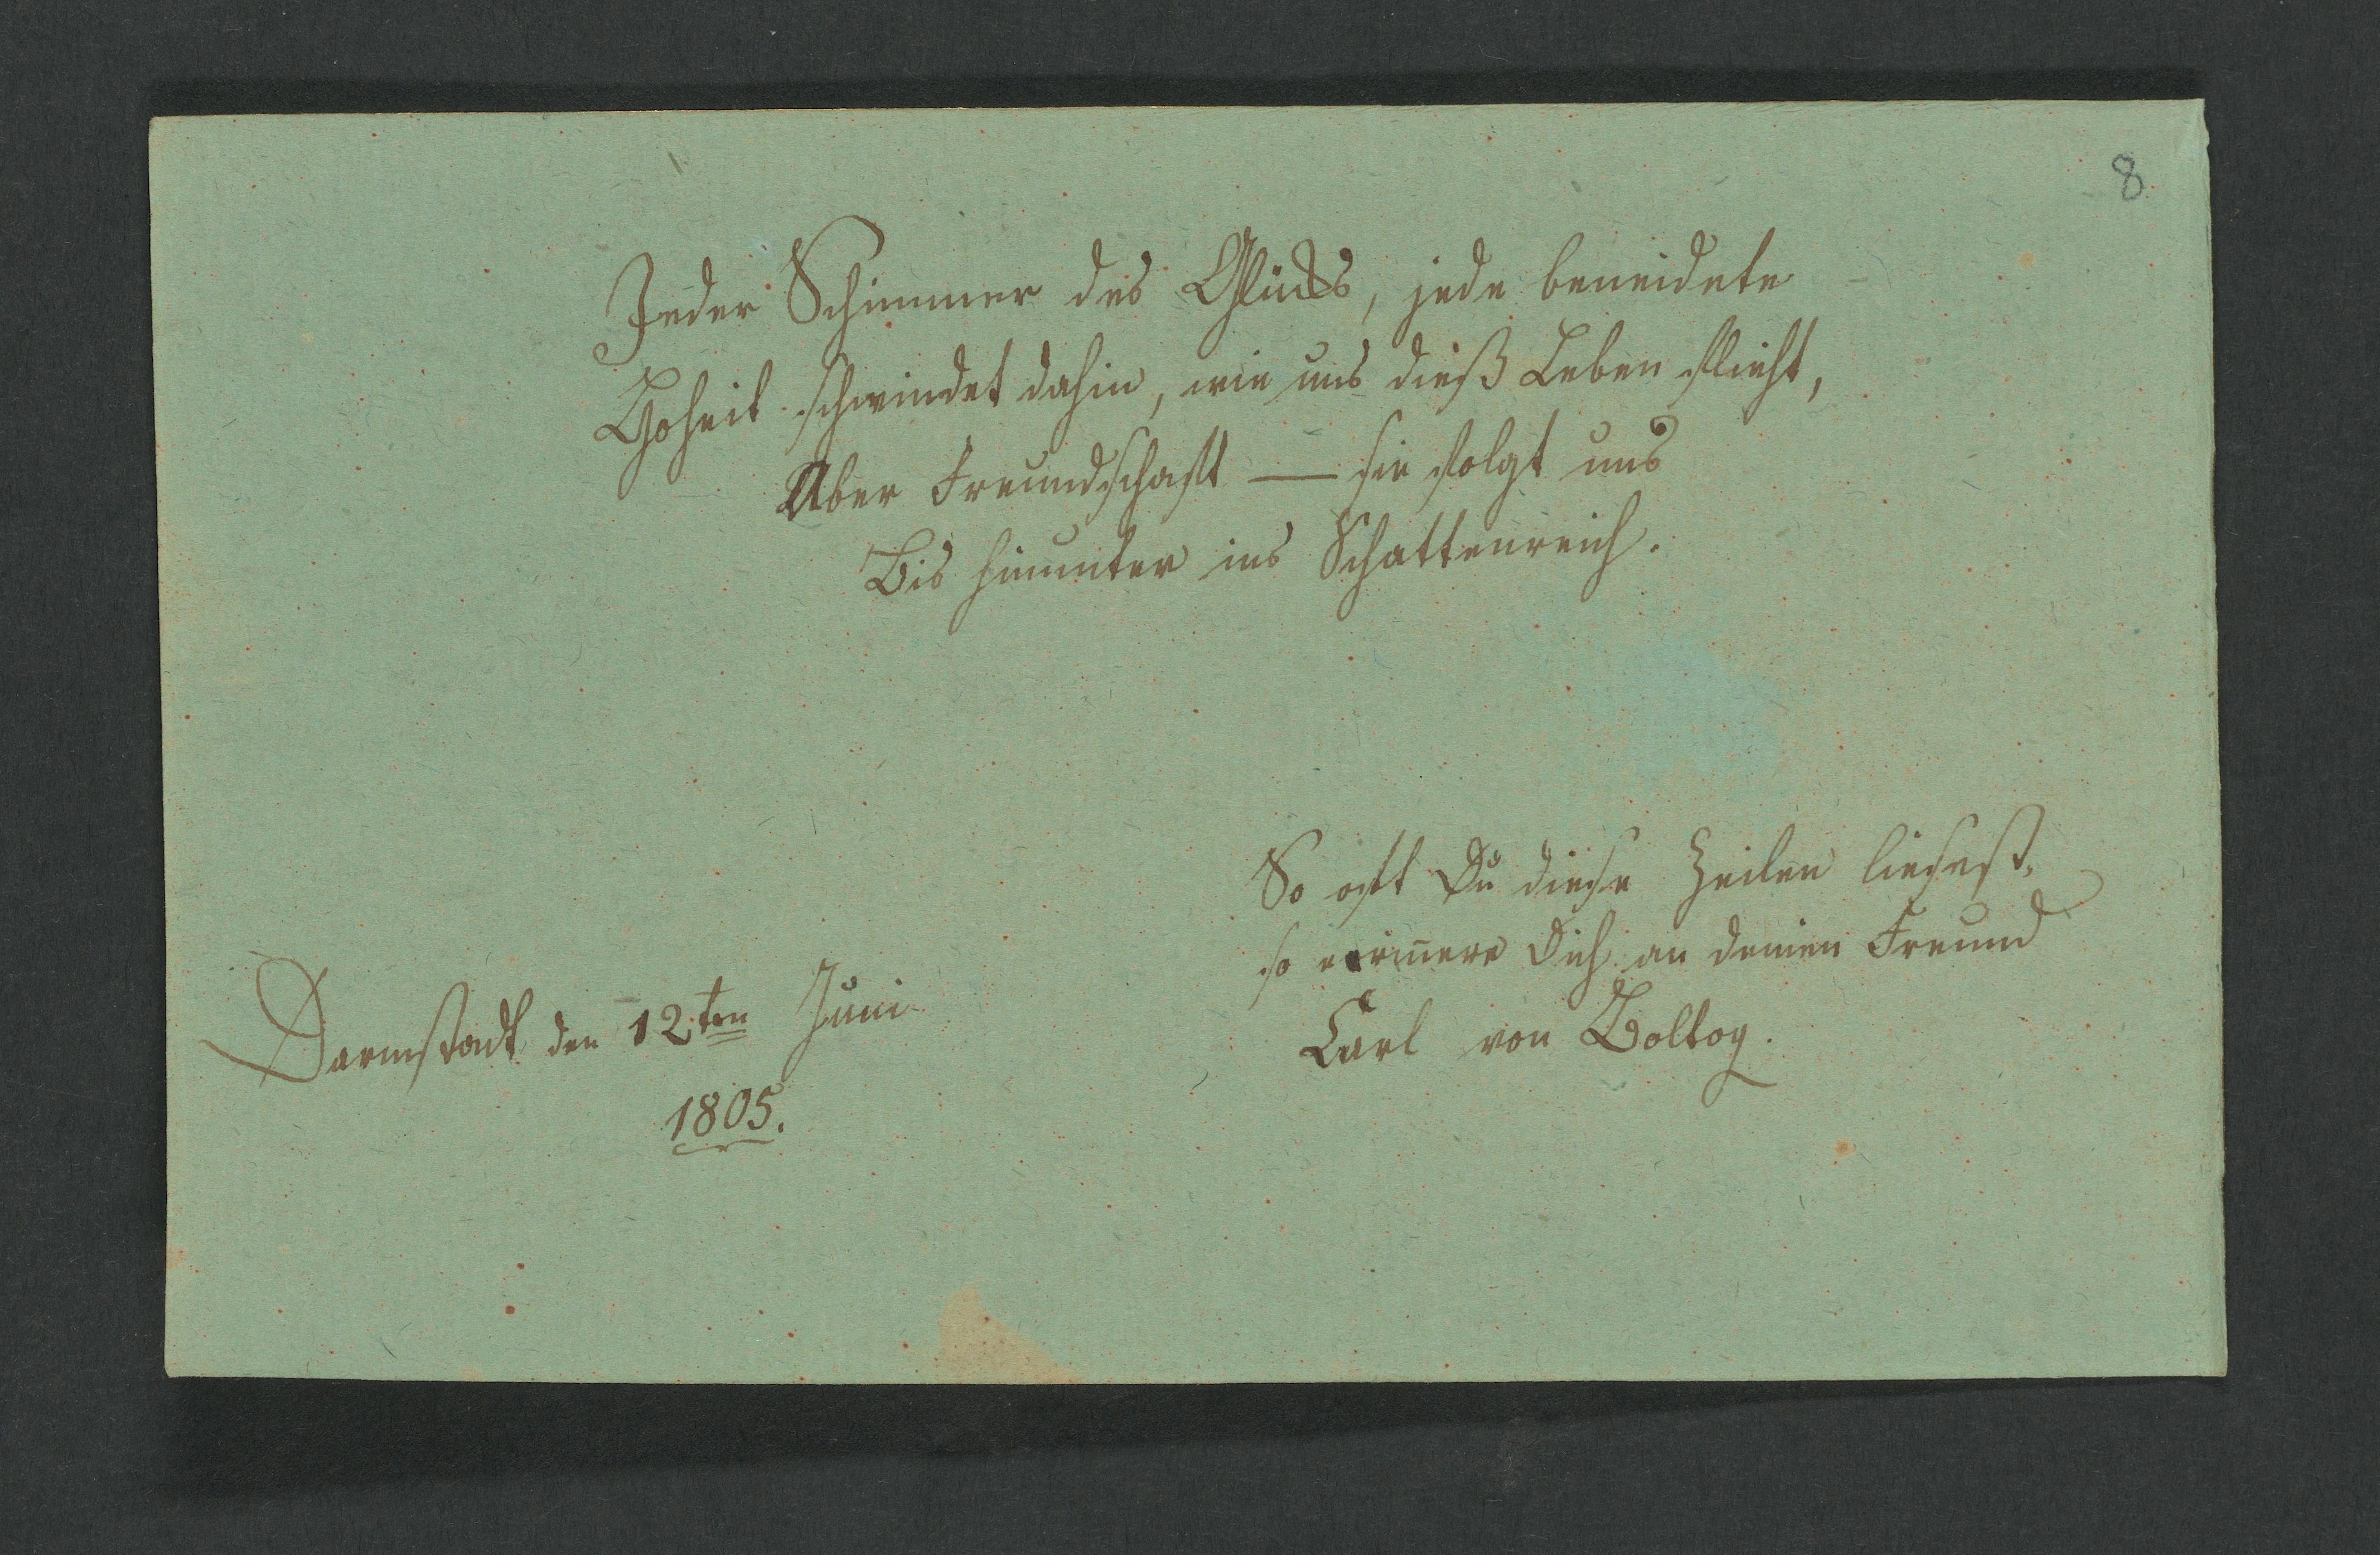 8
Jeder Schimmer des Glücks, jede beneidete
Hoheit schwindet dahin, wie uns dieß Leben flieht,
Aber Freundschaft — sie folgt uns
Bis hinunter ins Schattenreich.
So oft Du diese Zeilen liesest,
so erinnere Dich an deinen Freund
Carl von Boltog.
Darmstadt den 12ten Juni
1805.